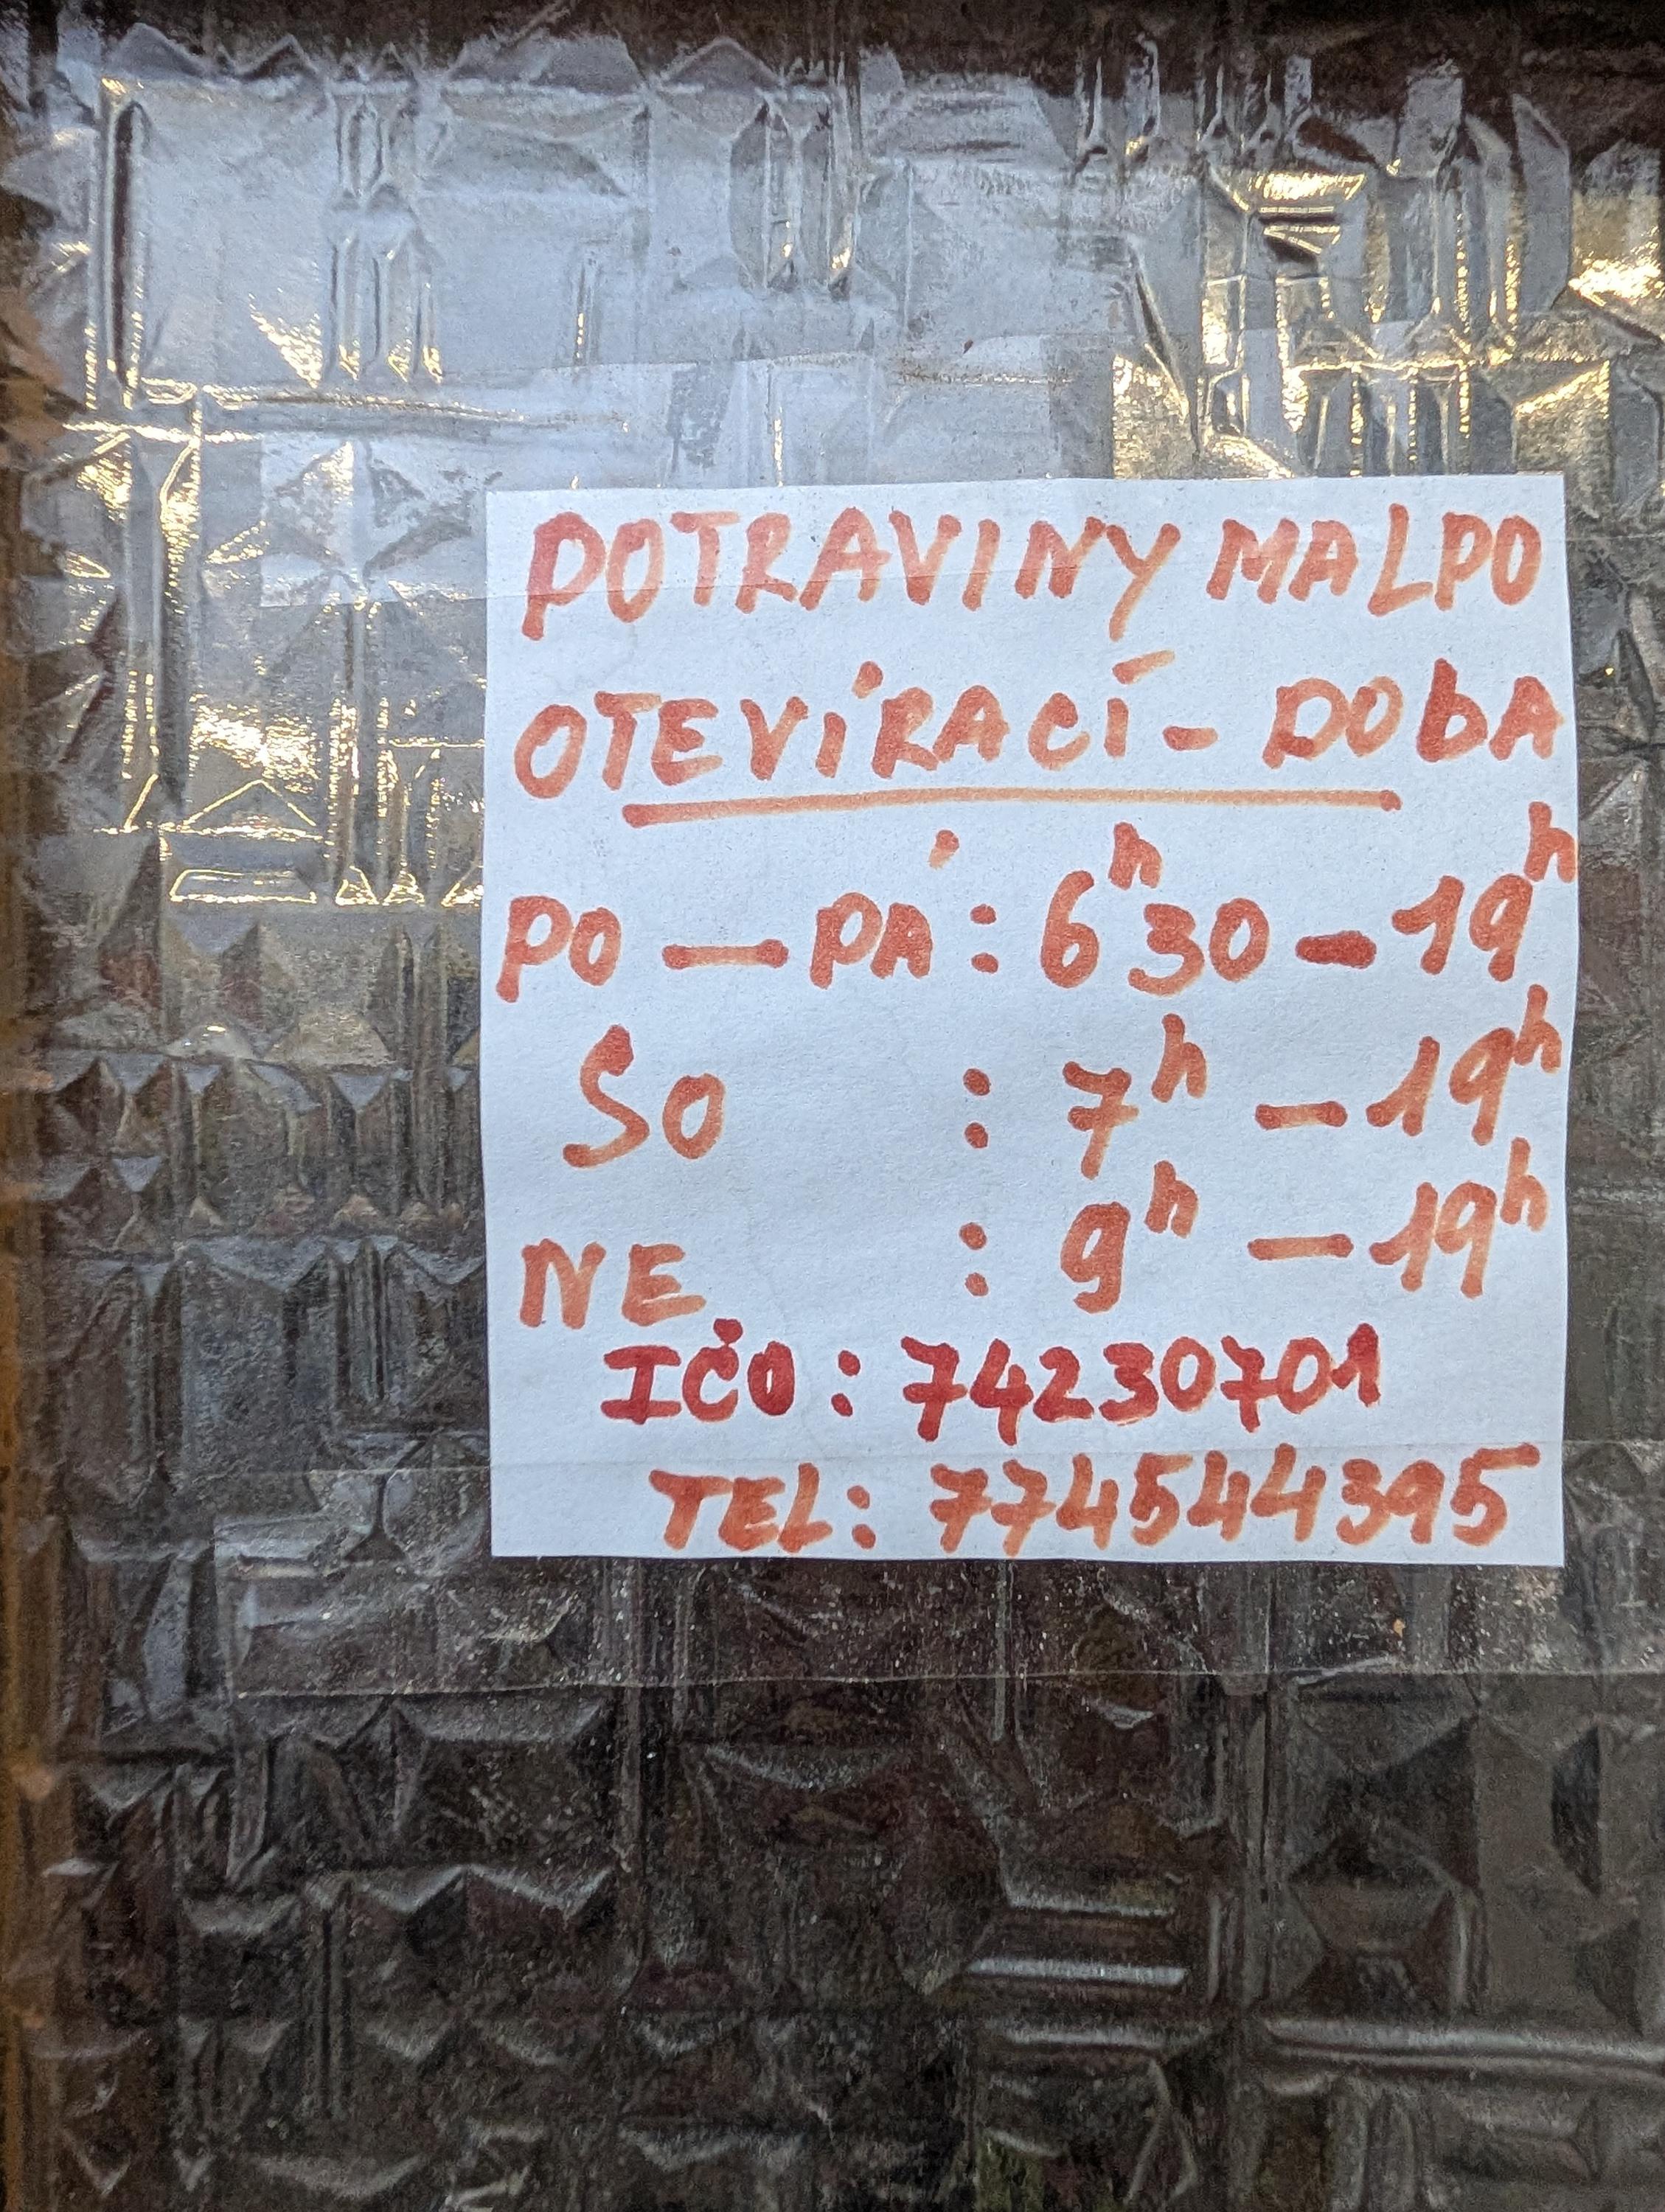 POTRAVINY MALPO
OTEVÍRACÍ - DOBA
PO — PÁ : 6h 30 - 19h
SO : 7h - 19h
NE : 9h - 19h
IČO : 74230701
TEL: 774544395